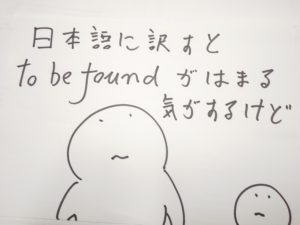 日本語に訳すと
to be found がはまる
気がするけど